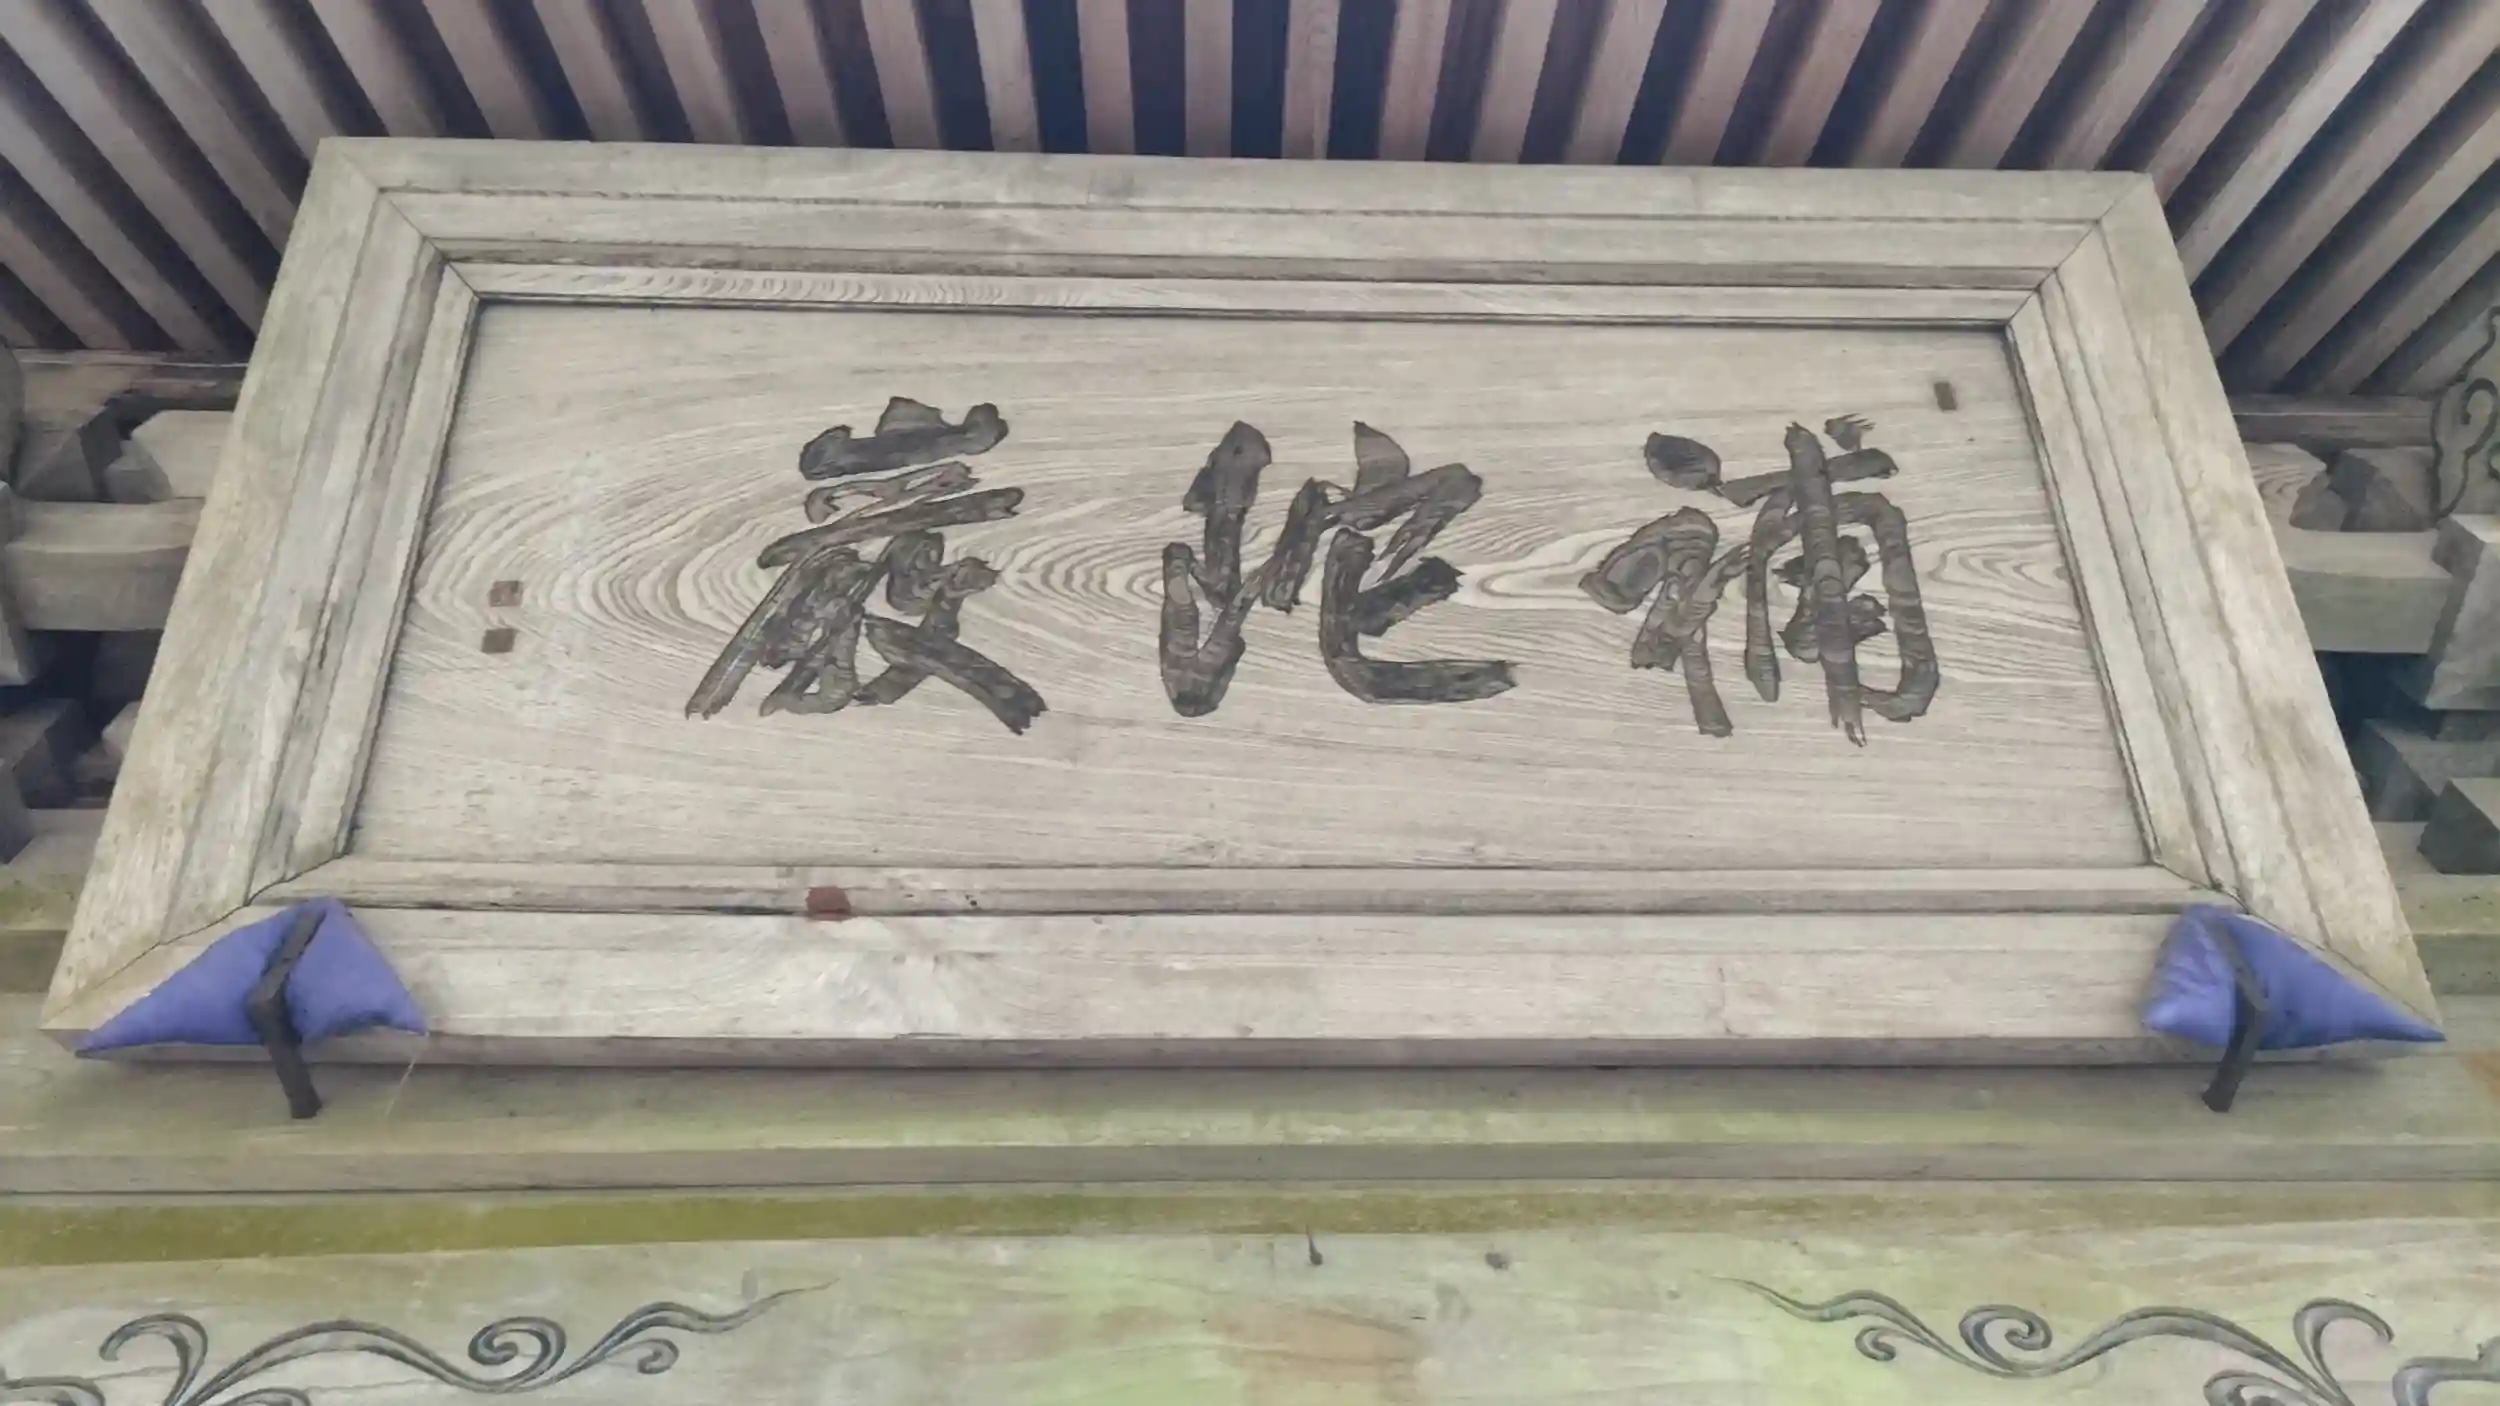 補陀巖